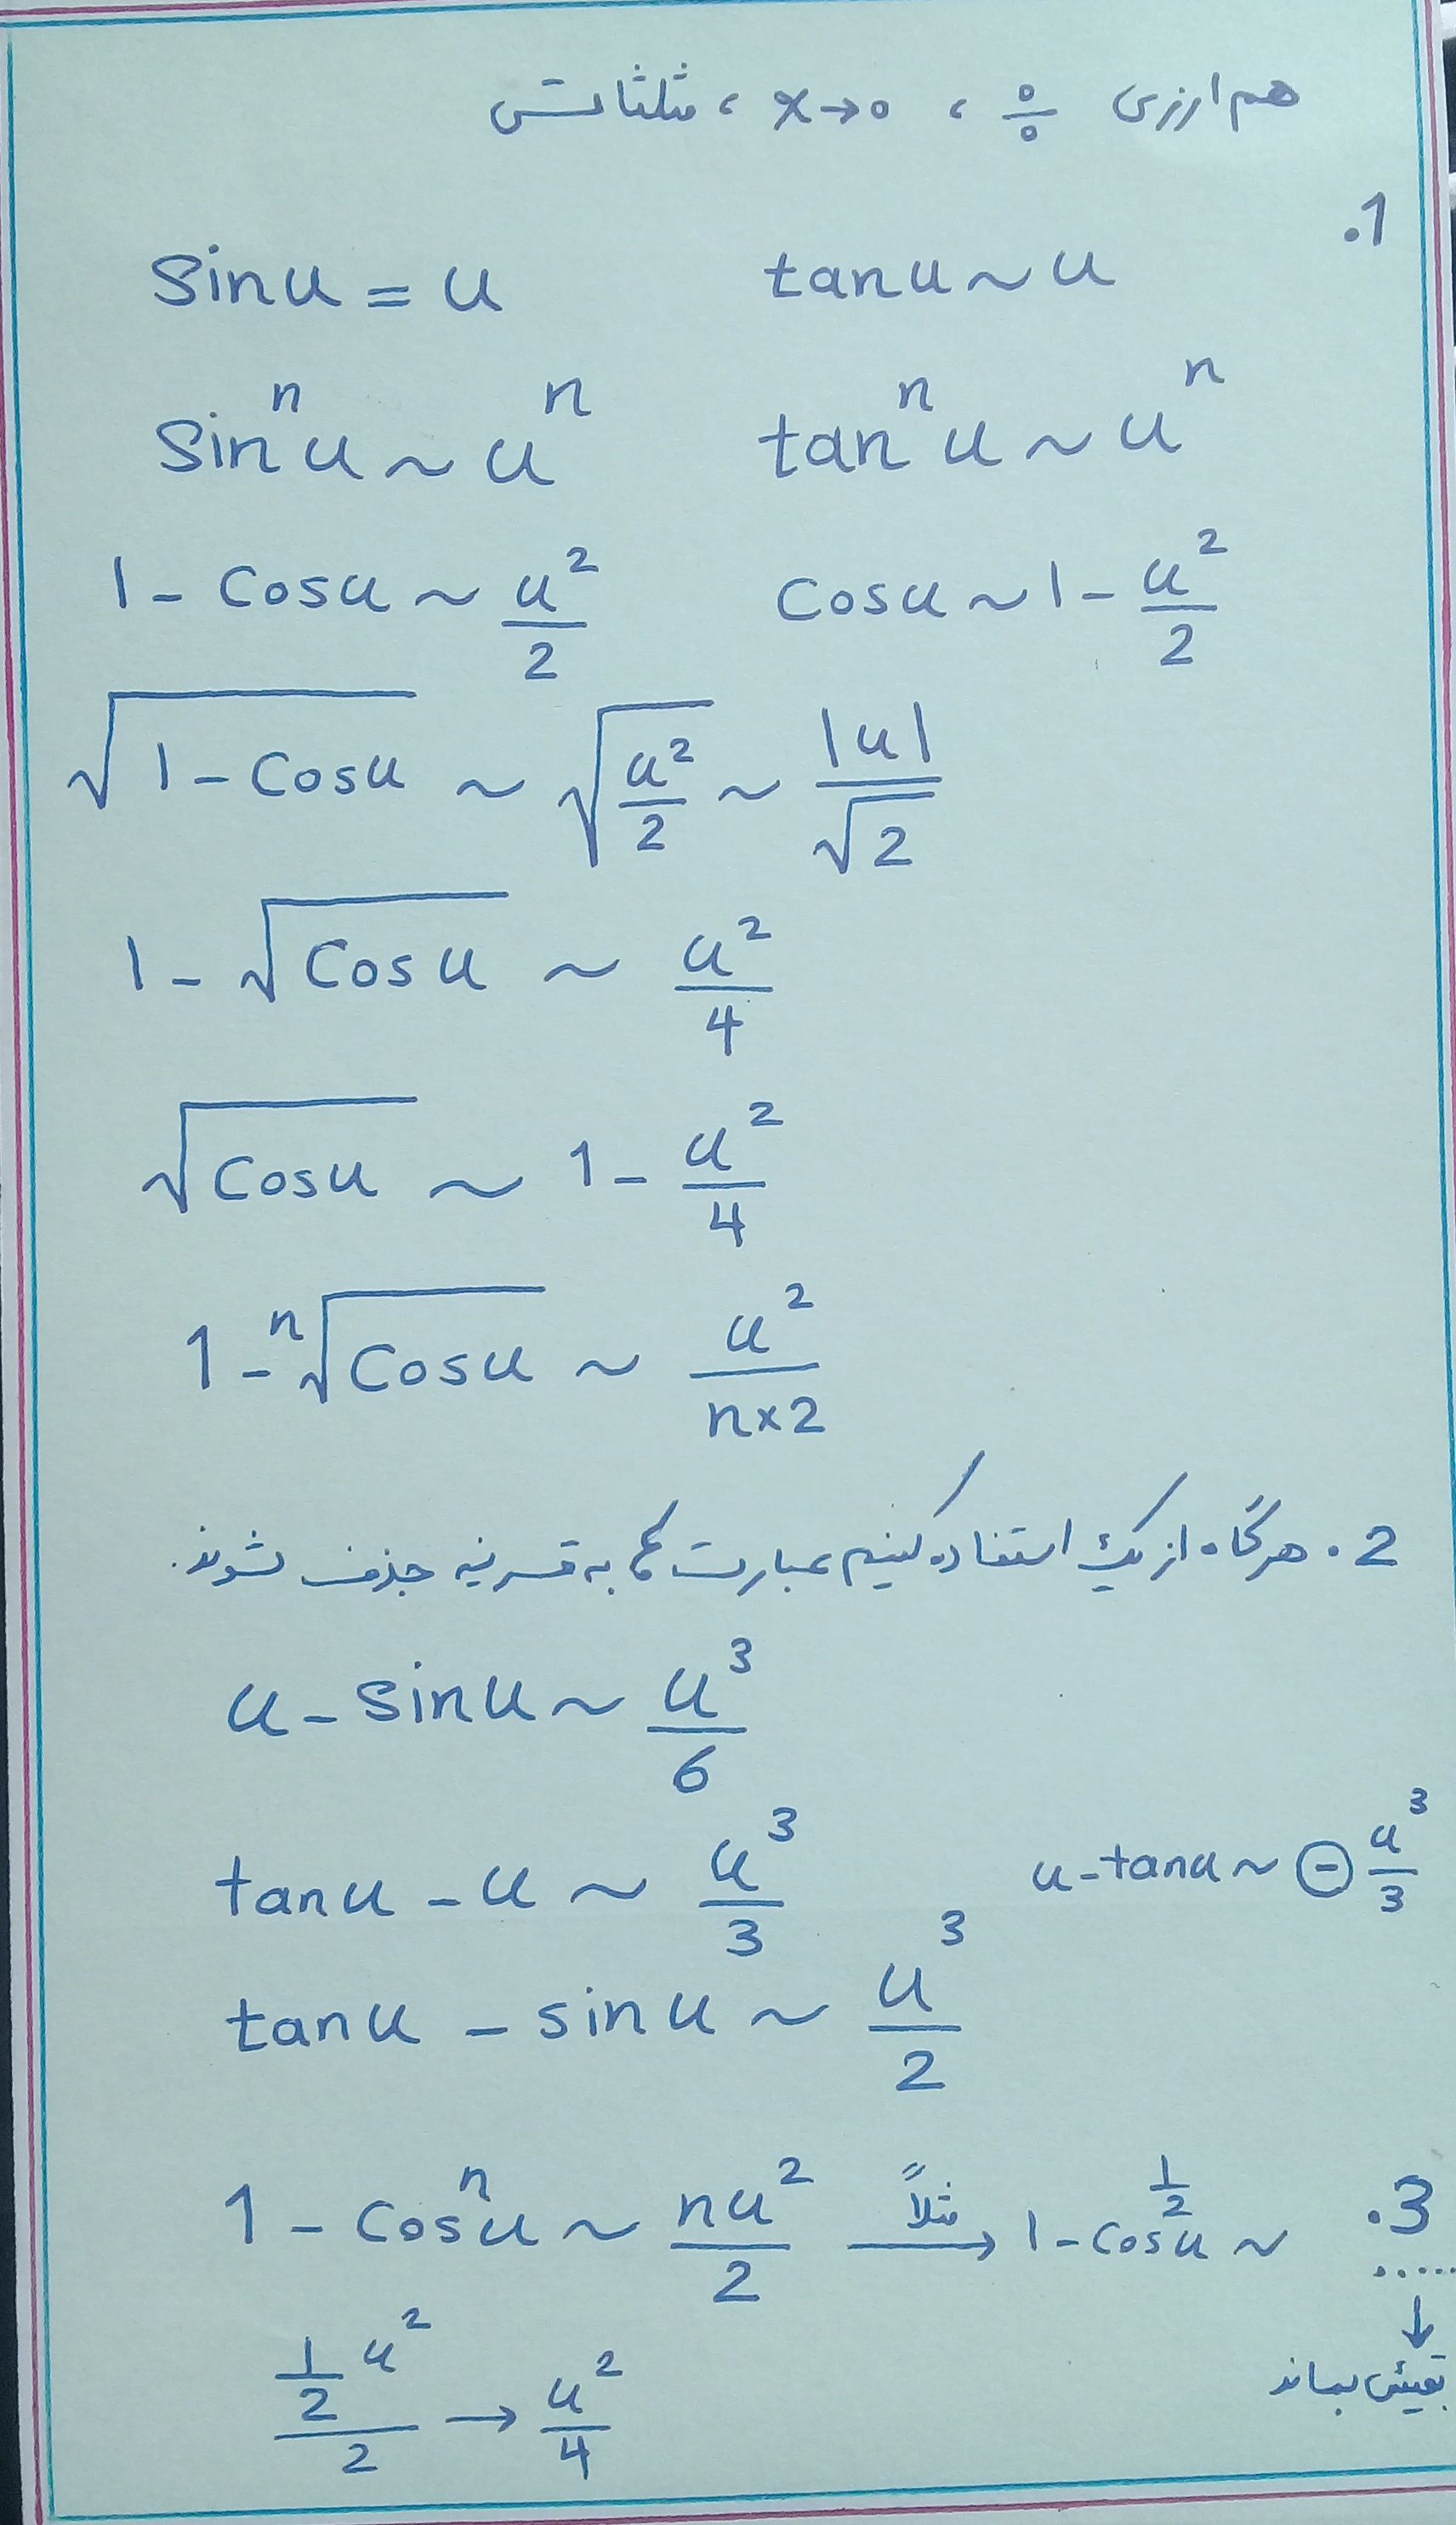 هم ارزی 0/0 ، x→0 ، مثلثاتی
1.
sinu = u    tanu ~ u
sinⁿu ~ uⁿ    tanⁿu ~ uⁿ
1 - cosu ~ u²/2    cosu ~ 1 - u²/2
√(1 - cosu) ~ √(u²/2) ~ |u|/√2
1 - √(cosu) ~ u²/4
√(cosu) ~ 1 - u²/4
1 - ⁿ√(cosu) ~ u²/(n×2)
2. هرگاه از یک استفاده کنیم عبارت ها به قرینه حذف شوند.
u - sinu ~ u³/6
tanu - u ~ u³/3    u - tanu ~ ⊖ u³/3
tanu - sinu ~ u³/2
3. 1 - cosⁿu ~ nu²/2 مثلاً → 1 - cos^(1/2) u ~ .....
↓
(1/2 u²)/2 → u²/4
بقیش بماند